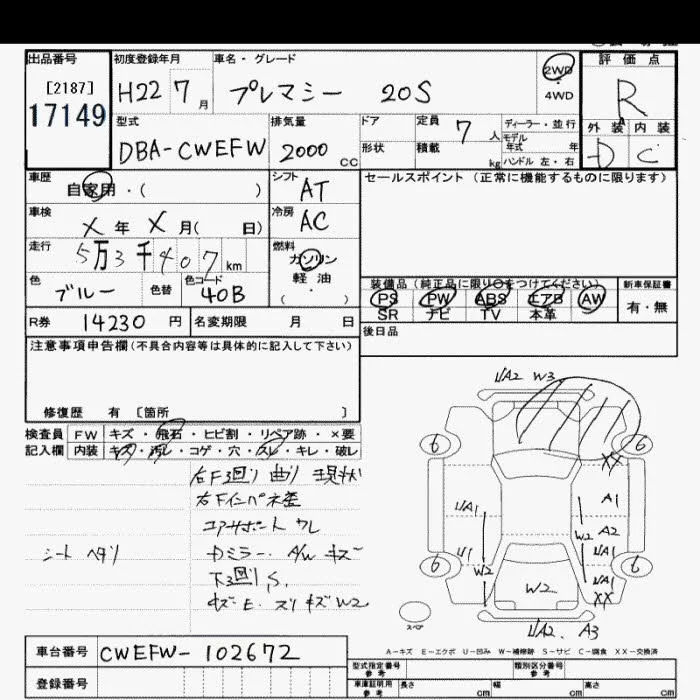 出品番号 初度登録年月 車名・グレード 2WD 評価点
[2187] H22 7月 プレマシー 20S 4WD R
17149
型式 排気量 ドア 定員 7人 ディーラー・並行 外装 内装
DBA-CWEFW 2000cc 形状 積載 kg モデル年式 年 D C
ハンドル 左・右
車歴 シフト セールスポイント (正常に機能するものに限ります)
自家用・( ) AT
車検 冷房
X年 X月( 日) AC
走行 燃料
5万3千407km ガソリン
軽油
色 色替 色コード ( ・ ) 装備品(純正品に限り○をつけてください) 新車保証書
ブルー 40B PS PW ABS エアB AW 有・無
SR ナビ TV 本革
R券 14230円 名変期限 月 日 後日品
注意事項申告欄(不具合内容等は具体的に記入して下さい)
修復歴 有 〔箇所 〕
検査員 FW キズ・飛石・ヒビ割・リペア跡・×要
記入欄 内装 キズ・汚レ・コゲ・穴・スレ・キレ・破レ
右F3回り曲り現状
右Fインパネ歪
コアサポート ワレ
シート ヘタリ
ミラー A/W キズ
下3回りS,
キズ E. スリキズ W2
1/A2 W3
6 6
XX
1/A1 A1
W2 A2
1/A1
U1 1/A1
6 W2 6
W2 XX
スペア
1/A2. A3
A-キズ E-エクボ U-凹み W-補修跡 S-サビ C-腐食 XX-交換済
車台番号 CWEFW-102672
登録番号
型式指定番号 参考 類別区分番号 参考
車庫証明用 参考 長さ cm 幅 cm 高さ cm